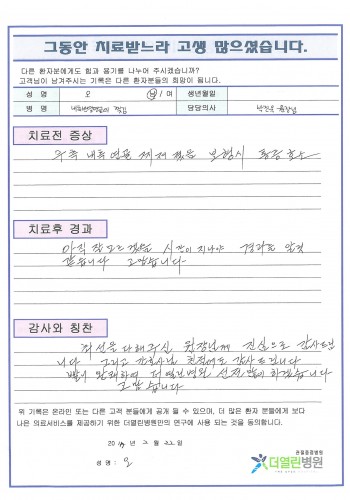 그동안 치료받느라 고생 많으셨습니다.
다른 환자분에게도 힘과 용기를 나누어 주시겠습니까?
고객님이 남겨주시는 기록은 다른 환자분들의 희망이 됩니다.
성 명 오 남 / 여 생년월일
병 명 내측반월연골의 찢김 담당의사 원장님
치료전 증상
우측 내측연골 찢어졌음 보행시 통증호소
치료후 경과
아직 잘모르겠는데 시간이 지나야 경과를 알것
같습니다 고맙습니다.
감사와 칭찬
최선을 다해주신 원장님께 진심으로 감사드립
니다 그리고 간호사님 친절에도 감사드립니다
빨리 완쾌하여 더열린병원 선전많이하겠습니다
고맙습니다
위 기록은 온라인 또는 다른 고객 분들에게 공개 될 수 있으며, 더 많은 환자 분들에게 보다
나은 의료서비스를 제공하기 위한 더열린병원만의 연구에 사용 되는 것을 동의합니다.
20 년 2 월 22 일
성 명 : 오
관절중점병원
더열린병원